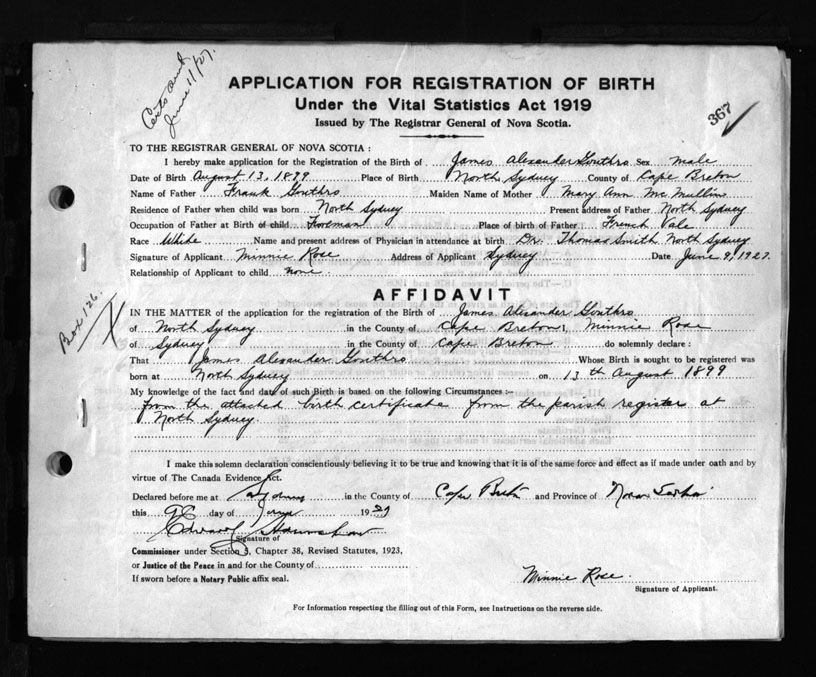 Certs and
June 11/27.
APPLICATION FOR REGISTRATION OF BIRTH
Under the Vital Statistics Act 1919
Issued by The Registrar General of Nova Scotia.
367
TO THE REGISTRAR GENERAL OF NOVA SCOTIA :
I hereby make application for the Registration of the Birth of James Alexander Gouthro Sex male
Date of Birth August 13, 1899 Place of Birth North Sydney County of Cape Breton
Name of Father Frank Gouthro Maiden Name of Mother Mary Ann McMullin
Residence of Father when child was born North Sydney Present address of Father North Sydney
Occupation of Father at Birth of child Foreman Place of birth of Father French Vale
Race White Name and present address of Physician in attendance at birth Dr. Thomas Smith North Sydney
Signature of Applicant Minnie Rose Address of Applicant Sydney Date June 9, 1927.
Relationship of Applicant to child none
Box 126.
AFFIDAVIT
IN THE MATTER of the application for the registration of the Birth of James Alexander Gouthro
of North Sydney in the County of Cape Breton I, Minnie Rose
of Sydney in the County of Cape Breton do solemnly declare :
That James Alexander Gouthro Whose Birth is sought to be registered was
born at North Sydney on 13th August 1899
My knowledge of the fact and date of such Birth is based on the following Circumstances :-
from the attached birth certificate from the parish register at
North Sydney.
I make this solemn declaration conscientiously believing it to be true and knowing that it is of the same force and effect as if made under oath and by
virtue of The Canada Evidence Act.
Declared before me at Sydney in the County of Cape Breton and Province of Nova Scotia
this 9th day of June 19
Edward
Signature of
Commissioner under Section 3, Chapter 38, Revised Statutes, 1923,
or Justice of the Peace in and for the County of
If sworn before a Notary Public affix seal.
Minnie Rose.
Signature of Applicant.
For Information respecting the filling out of this Form, see Instructions on the reverse side.